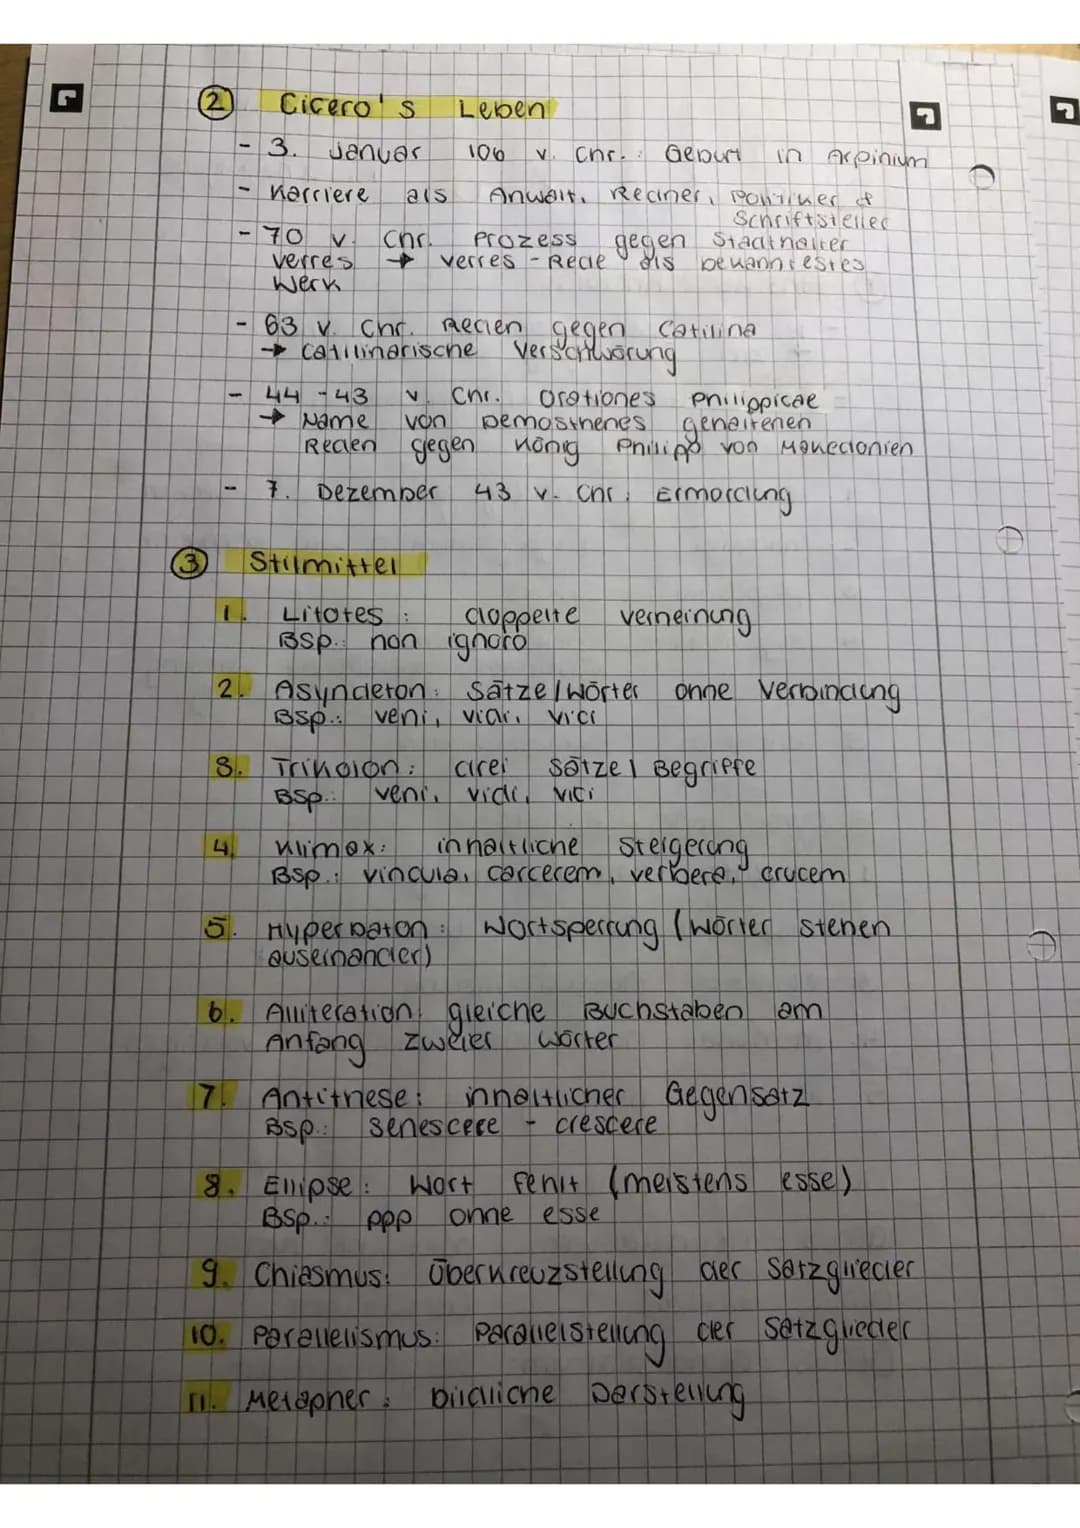 2 Cicero's Leben
- 3. Januar 106 v. Chr.: Geburt in Arpinium
- Karriere als Anwalt, Redner, Politiker &
Schriftsteller
- 70 v. Chr. Prozess gegen Stadthalter
Verres → Verres-Rede als bekanntestes
Werk
- 63 v. Chr. Reden gegen Catilina
→ Catilinarische Verschwörung
- 44-43 v. Chr. Orationes Philippicae
→ Name von Demosthenes gehaltenen
Reden gegen König Philipp von Makedonien
- 7. Dezember 43 v. Chr. Ermordung
3 Stilmittel
1. Litotes: doppelte Verneinung
Bsp.: non ignoro
2. Asyndeton: Sätze/Wörter ohne Verbindung
Bsp.: veni, vidi, vici
3. Trikolon: drei Sätze/Begriffe
Bsp.: veni, vidi, vici
4. Klimax: inhaltliche Steigerung
Bsp.: vincula, carcerem, verbera, crucem
5. Hyperbaton: Wortsperrung (Wörter stehen
auseinander)
6. Alliteration: gleiche Buchstaben am
Anfang zweier Wörter
7. Antithese: inhaltlicher Gegensatz
Bsp.: senescere - crescere
8. Ellipse: Wort fehlt (meistens esse)
Bsp.: PPP ohne esse
9. Chiasmus: Überkreuzstellung der Satzglieder
10. Parallelismus: Parallelstellung der Satzglieder
11. Metapher: bildliche Darstellung